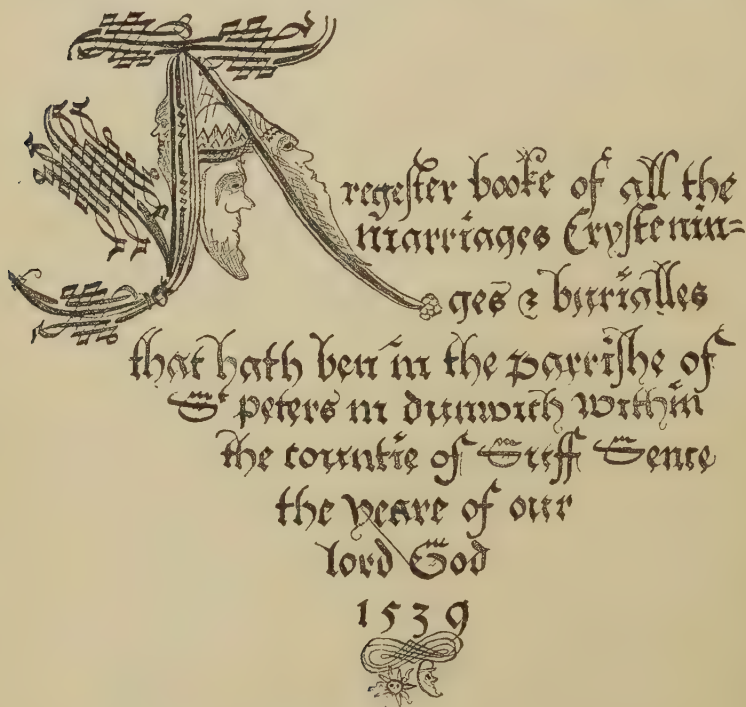 A
regester booke of all the
marriages Crystenin=
ges & burialles
that hath ben in the parrishe of
St peters in dunwich within
the countie of Suff Sence
the yeare of our
lord God
1539